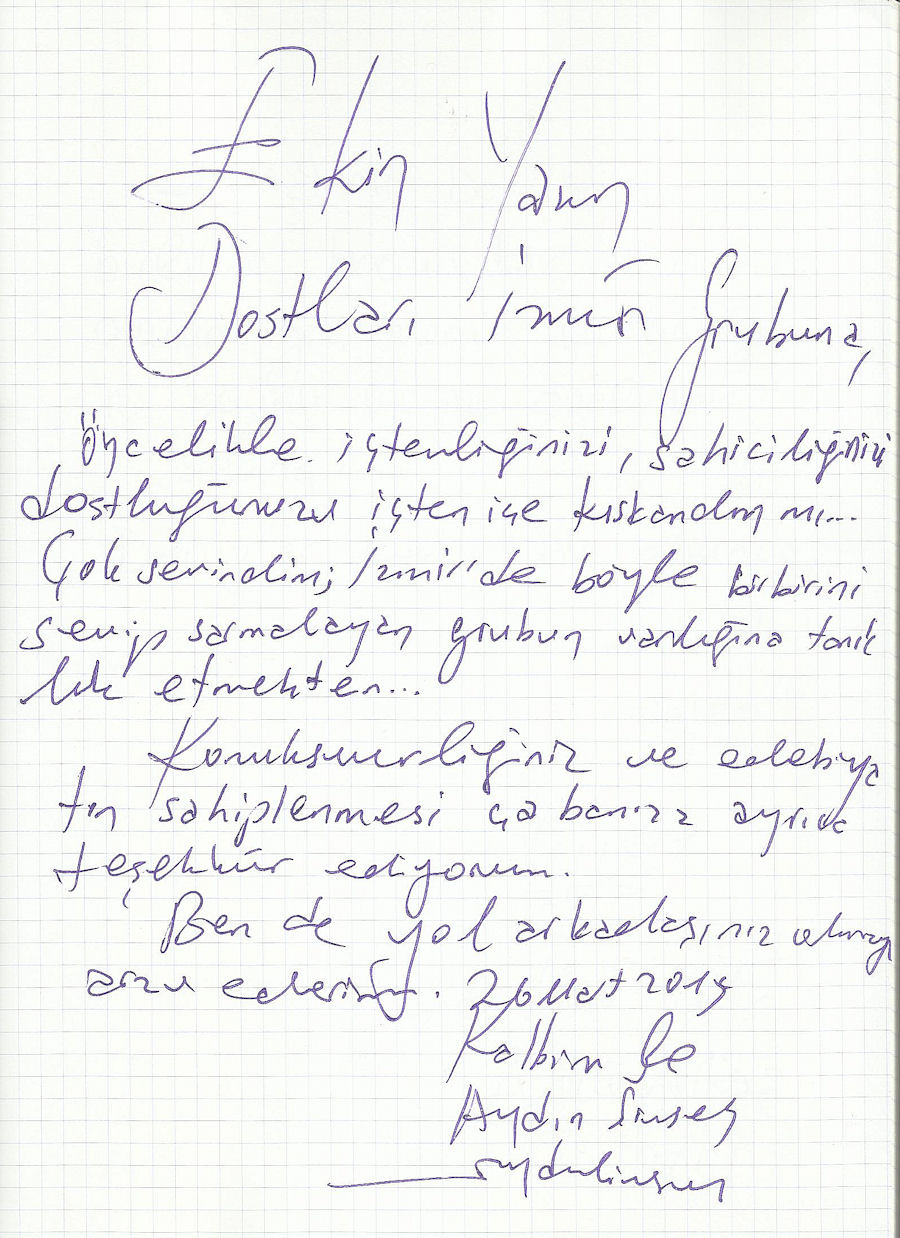 Ekin Yazın
Dostları İzmir Grubuna,
Öncelikle içtenliğinizi, sahiciliğinizi
dostluğunuzu içten içe kıskandım mı...
Çok sevindim; İzmir'de böyle birbirini
sevip sarmalayan grubun varlığına tanık
lık etmekten...
Konukseverliğiniz ve edebiya
tın sahiplenmesi çabanıza ayrıca
teşekkür ediyorum.
Ben de yol arkadaşınız olmayı
arzu ederim. 26 Mart 2014
Kalbim
Aydın Şimşek